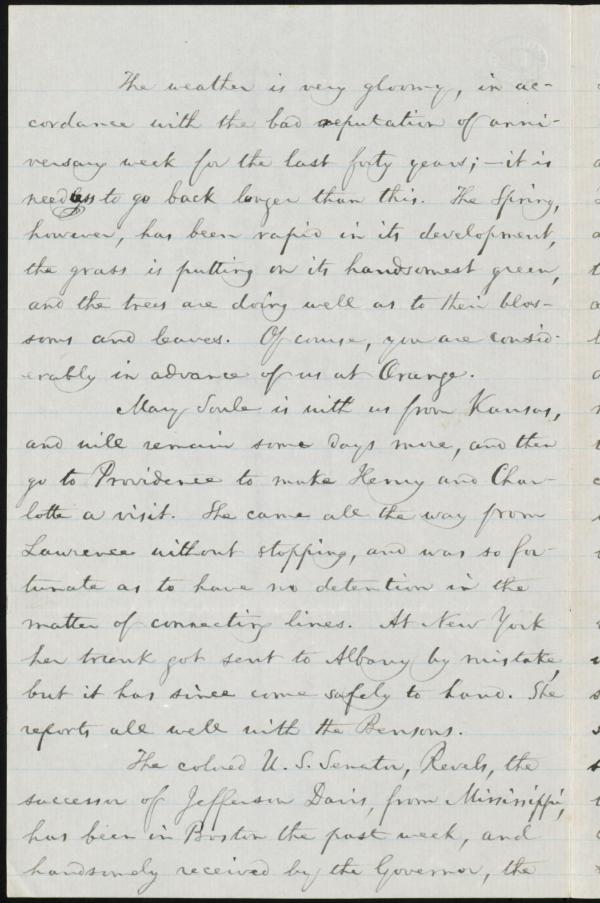 The weather is very gloomy, in ac-
cordance with the bad reputation of anni-
versary week for the last forty years; — it is
needless to go back longer than this. The Spring,
however, has been rapid in its development,
the grass is putting on its handsomest green,
and the trees are doing well as to their blos-
soms and leaves. Of course, you are consid-
erably in advance of us at Orange.
Mary Soule is with us from Kansas,
and will remain some days more, and then
go to Providence to make Henry and Char-
lotte a visit. She came all the way from
Lawrence without stopping, and was so for-
tunate as to have no detention in the
matter of connecting lines. At New York
her trunk got sent to Albany by mistake,
but it has since come safely to hand. She
reports all well with the Bensons.
The colored U. S. Senator, Revels, the
successor of Jefferson Davis, from Mississippi,
has been in Boston the past week, and
handsomely received by the Governor, the